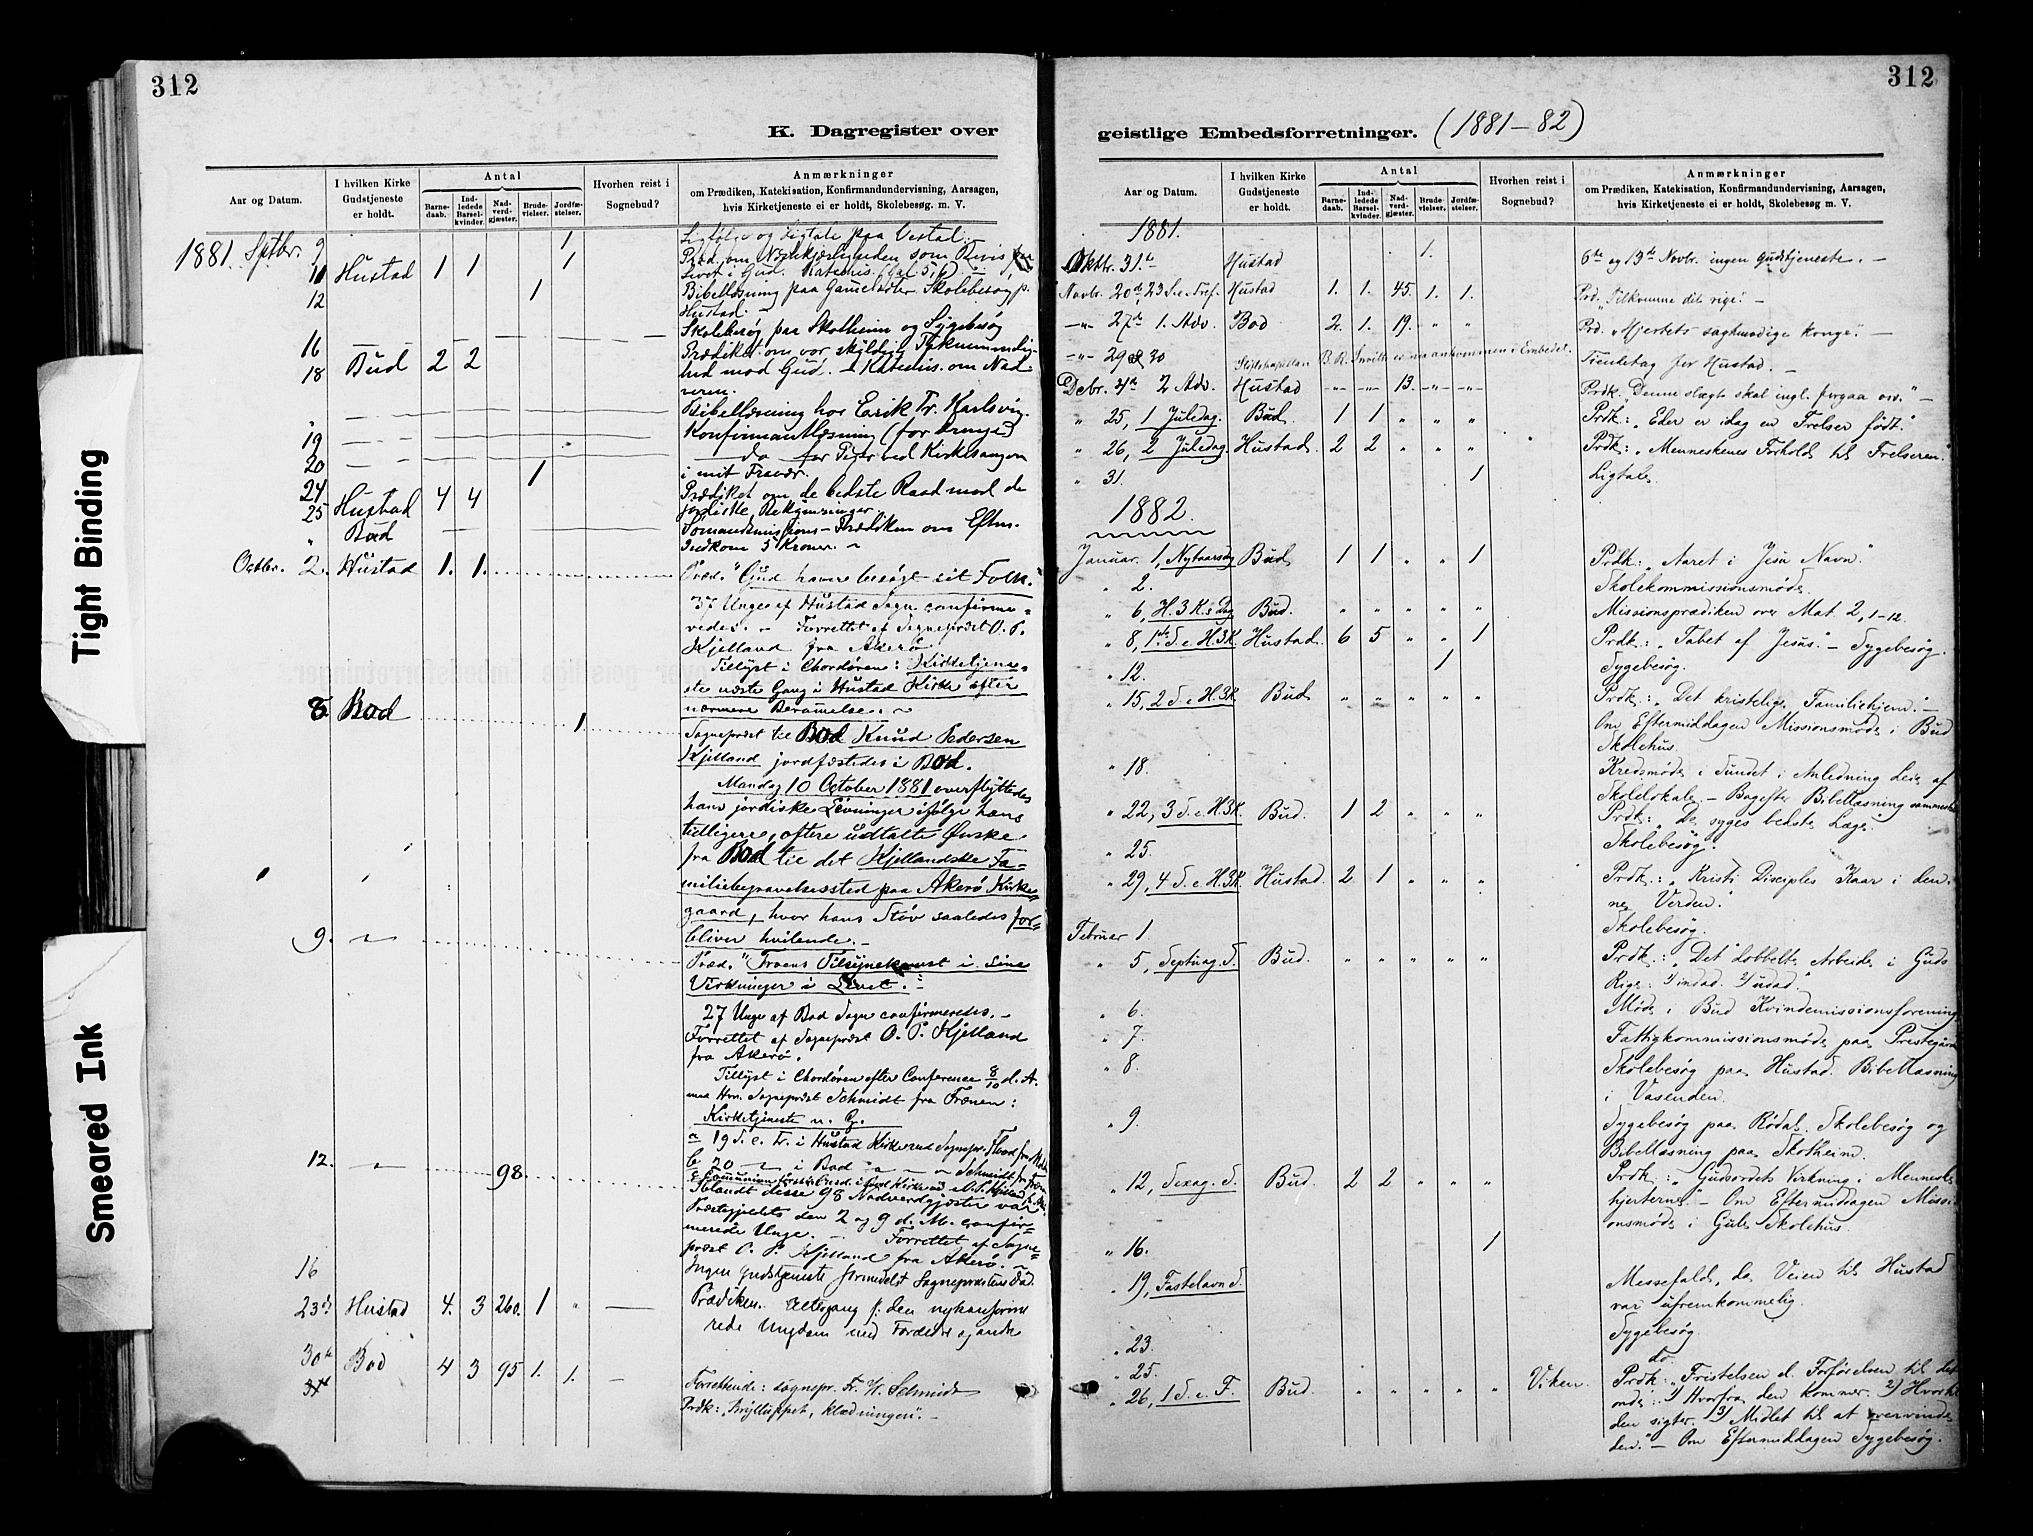 312
K. Dagregister over
Aar og Datum.
I hvilken Kirke Gudstjeneste er holdt.
Antal
Barne-daab.
Ind-ledede Barsel-kvinder.
Nad-verd-gjæster.
Brude-vielser.
Jordfæ-stelser.
Hvorhen reist i Sognebud?
Anmærkninger
om Prædiken, Katekisation, Konfirmandundervisning, Aarsagen,
hvis Kirketjeneste ei er holdt, Skolebesøg m. V.
1881. Septbr. 9 1 Ligfølge og Ligtale paa Vestad.
11 Hustad 1 1 1 Præd. om Næstekjærligheden som
Livet i Gud.
12 1 Bibellæsning paa Skolebesøg p.
Hustad.
16 Skolebesøg paa Skotheim og Sygebesøg
18 Bud 2 2 Prædiket om vor skyldige
hed mod Gud. - Katechis. om Nad-
veren.
" Bibellæsning hos Erik Tr. Karlsvig.
19 Konfirmantlæsning (for Drenge)
20 do for Piger ved Kirkesangeren
24 1 i mit Fravær.
25 Hustad 4 4 Prædiket om de bedste Raad mod de
jordiske Bekymringer.
" Bud Sømandsmissions-Prædiken om Eftm.
Indkom 5 Kroner.
Octbr. 2. Hustad 1. 1. Præd. "Gud haver besøgt sit Folk."
37 Unge af Hustad Sogn confirme-
redes. - Forrettet af Sognepræst O. P.
Kjelland fra Akerø
Tillyst i Chordøren: Kirketjene-
ste næste Gang i Hustad Kirke efter
nærmere Berammelse.
8 Bod 1 Sognepræst til Bod Knud Pedersen
Kjelland jordfæstedes i Bod.
Mandag 10 October 1881 overflyttedes
hans jordiske Levninger ifølge hans
tidligere, oftere udtalte Ønske
fra Bod til det Kjellandske Fa-
miliebegravelsessted paa Akerø Kirke-
gaard, hvor hans Støv saaledes for-
bliver hvilende.
9. " Præd. "Troens Tilsynekomst i sine
Virkninger i Livet."
27 Unge af Bod Sogn confirmeredes.
Forrettet af Sognepræst O. P. Kjelland
fra Akerø.
Tillyst i Chordøren efter Conference 8/10 d. A.
med Hrr. Sognepræst Schmidt fra Frænen:
Kirketjeneste n. G.
a 19 S. e. Tr. i Hustad Kirke ved Sognepr. Flood fra
b 20 i Bod Schmidt fra
12. " 98. Iblandt disse 98 Nadverdgjæster var
Præstegjeldets den 2 og 9 d. M. confir-
merede Unge. - Forrettet af Sogne-
præst O. P. Kjelland fra Akerø.
16 Ingen Gudstjeneste formedelst Sognepræstens Død.
23de Hustad 4. 3 260. 1 " Prædiken. Altergang f. den nykonfirme
rede Ungdom med Forældre og andre
30te Bod 4 3 95 1. 1. Forrettende: sognepr. Fr. W. Schmidt
Prdk: "Brylluppet, klædningen".
312
geistlige Embedsforretninger. (1881-82)
Aar og Datum.
I hvilken Kirke Gudstjeneste er holdt.
Antal
Barne-daab.
Ind-ledede Barsel-kvinder.
Nad-verd-gjæster.
Brude-vielser.
Jordfæ-stelser.
Hvorhen reist i Sognebud?
Anmærkninger
om Prædiken, Katekisation, Konfirmandundervisning, Aarsagen,
hvis Kirketjeneste ei er holdt, Skolebesøg m. V.
1881.
Oktbr. 31te Hustad 1. 6te og 13de Novbr. ingen Gudstjeneste.
Novbr. 20de, 23 S. e. Tref. Hustad 1. 1. 45. 1. 1. Prd. "Tilkomme dit rige!"
" 27de 1. Adv. Bod 2. 1. 19. " " Prd. "Hjertets sagtmodige konge."
" 29 & 30 Stiftskapellan B. R. ankommen i Embedet. Trendetag for Hustad.
Debr. 4de 2 Adv. Hustad " " 13. " " Prdk: "Denne slægt skal ingl. forgaa osv."
" 25, 1 Juledag. Bud. 1 1 " " " Prdk: "Eder er idag en Frelser født."
" 26, 2 Juledag. Hustad. 2 2 " " " Prdk: "Menneskenes Forhold til Frelseren."
" 31. 1 Ligtale.
1882.
Januar. 1, Nytaarsdag Bud 1 1 " " 1 Prdk: "Aaret i Jesu Navn."
" 2. Skolekommissionsmøde.
" 6, H. 3 K.s Dag Bud. " " " " " Missionsprædiken over Mat. 2, 1-12.
" 8, 1ste S. e. H. 3 K. Hustad 6 5 " " 1 Prdk: "Tabet af Jesus." - Sygebesøg.
" 12. 1 Sygebesøg.
" 15, 2 S. e. H. 3 K. Bud " " " " " Prdk: "Det kristelige Familiehjem."
Om Eftermiddagen Missionsmøde i Bud
Skolehus.
" 18. Kredsmøde i Sundet i Anledning Leie af
Skolelokale. - Bagefter Bibellæsning sammesteds
" 22, 3 S. e. H. 3 K. Bud. 1 2 " " " Prdk: "De syges bedste Læge."
" 25. Skolebesøg.
" 29, 4 S. e. H. 3 K. Hustad. 2 1 " " " Prdk: "Kristi Disciples Kaar i den-
ne Verden."
Februar 1. Skolebesøg.
" 5, Septuag. S. Bud. " " " " " Prdk: "Det dobbelte Arbeide i Guds
Rige: 1/ indad. 2/ udad."
" 6. Møde i Bud Kvindemissionsforening
" 7. Fattigkommissionsmøde paa Prestegaard
" 8. Skolebesøg paa Hustad. Bibellæsning
i Vasenden.
" 9. Sygebesøg paa Rødal. Skolebesøg og
Bibellæsning paa Skotheim.
" 12, Sexag. S. Bud. 2 2 " " " Prdk: "Gudsordets Virkning i Menneske-
hjerterne." - Om Eftermiddagen Missi-
onsmøde i Gule Skolehus.
" 16. 1
" 19, Fastelavn S. Messefald, da Veien til Hustad
var ufremkommelig.
" 23. Sygebesøg
" 25. do.
" 26, 1 S. e. F. Bud. " " " " " Viken. Prdk: "Fristelsen d. Forførelsen til det
onde: 1) Hvorfra den kommer. 2) Hvortil
den sigter. 3) Midlet til at overvinde
den." - Om Eftermiddagen Sygebesøg.
Tight Binding
Smeared Ink